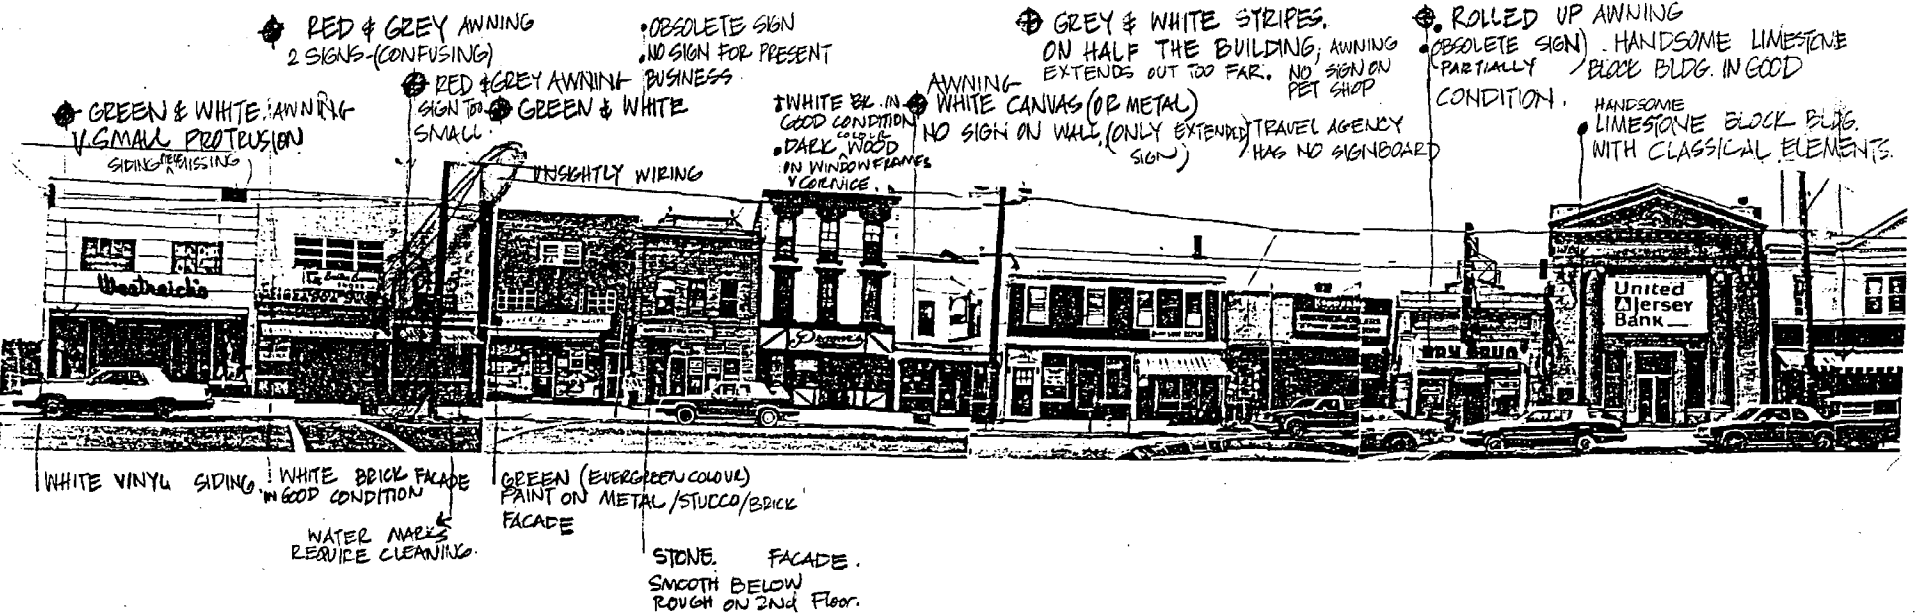 RED & GREY AWNING
2 SIGNS-(CONFUSING)
GREEN & WHITE AWNING
V. SMALL PROTRUSION
SIDING PIECE MISSING
RED & GREY AWNING
SIGN TOO
SMALL.
GREEN & WHITE
OBSOLETE SIGN
NO SIGN FOR PRESENT
BUSINESS
UNSIGHTLY WIRING
WHITE BK. IN
GOOD CONDITION
COLOUR
DARK WOOD
IN WINDOW FRAMES
& CORNICE.
AWNING
WHITE CANVAS (OR METAL)
NO SIGN ON WALL, (ONLY EXTENDED
SIGN)
GREY & WHITE STRIPES.
ON HALF THE BUILDING; AWNING
EXTENDS OUT TOO FAR.
NO SIGN ON
PET SHOP
TRAVEL AGENCY
HAS NO SIGNBOARD
ROLLED UP AWNING
(OBSOLETE SIGN)
PARTIALLY
. HANDSOME LIMESTONE
BLOCK BLDG. IN GOOD
CONDITION.
HANDSOME
LIMESTONE BLOCK BLDG.
WITH CLASSICAL ELEMENTS.
United
Jersey
Bank
DRUG
WHITE VINYL SIDING
WHITE BRICK FACADE
IN GOOD CONDITION
WATER MARKS
REQUIRE CLEANING.
GREEN (EVERGREEN COLOUR)
PAINT ON METAL/STUCCO/BRICK
FACADE
STONE. FACADE.
SMOOTH BELOW
ROUGH ON 2nd Floor.